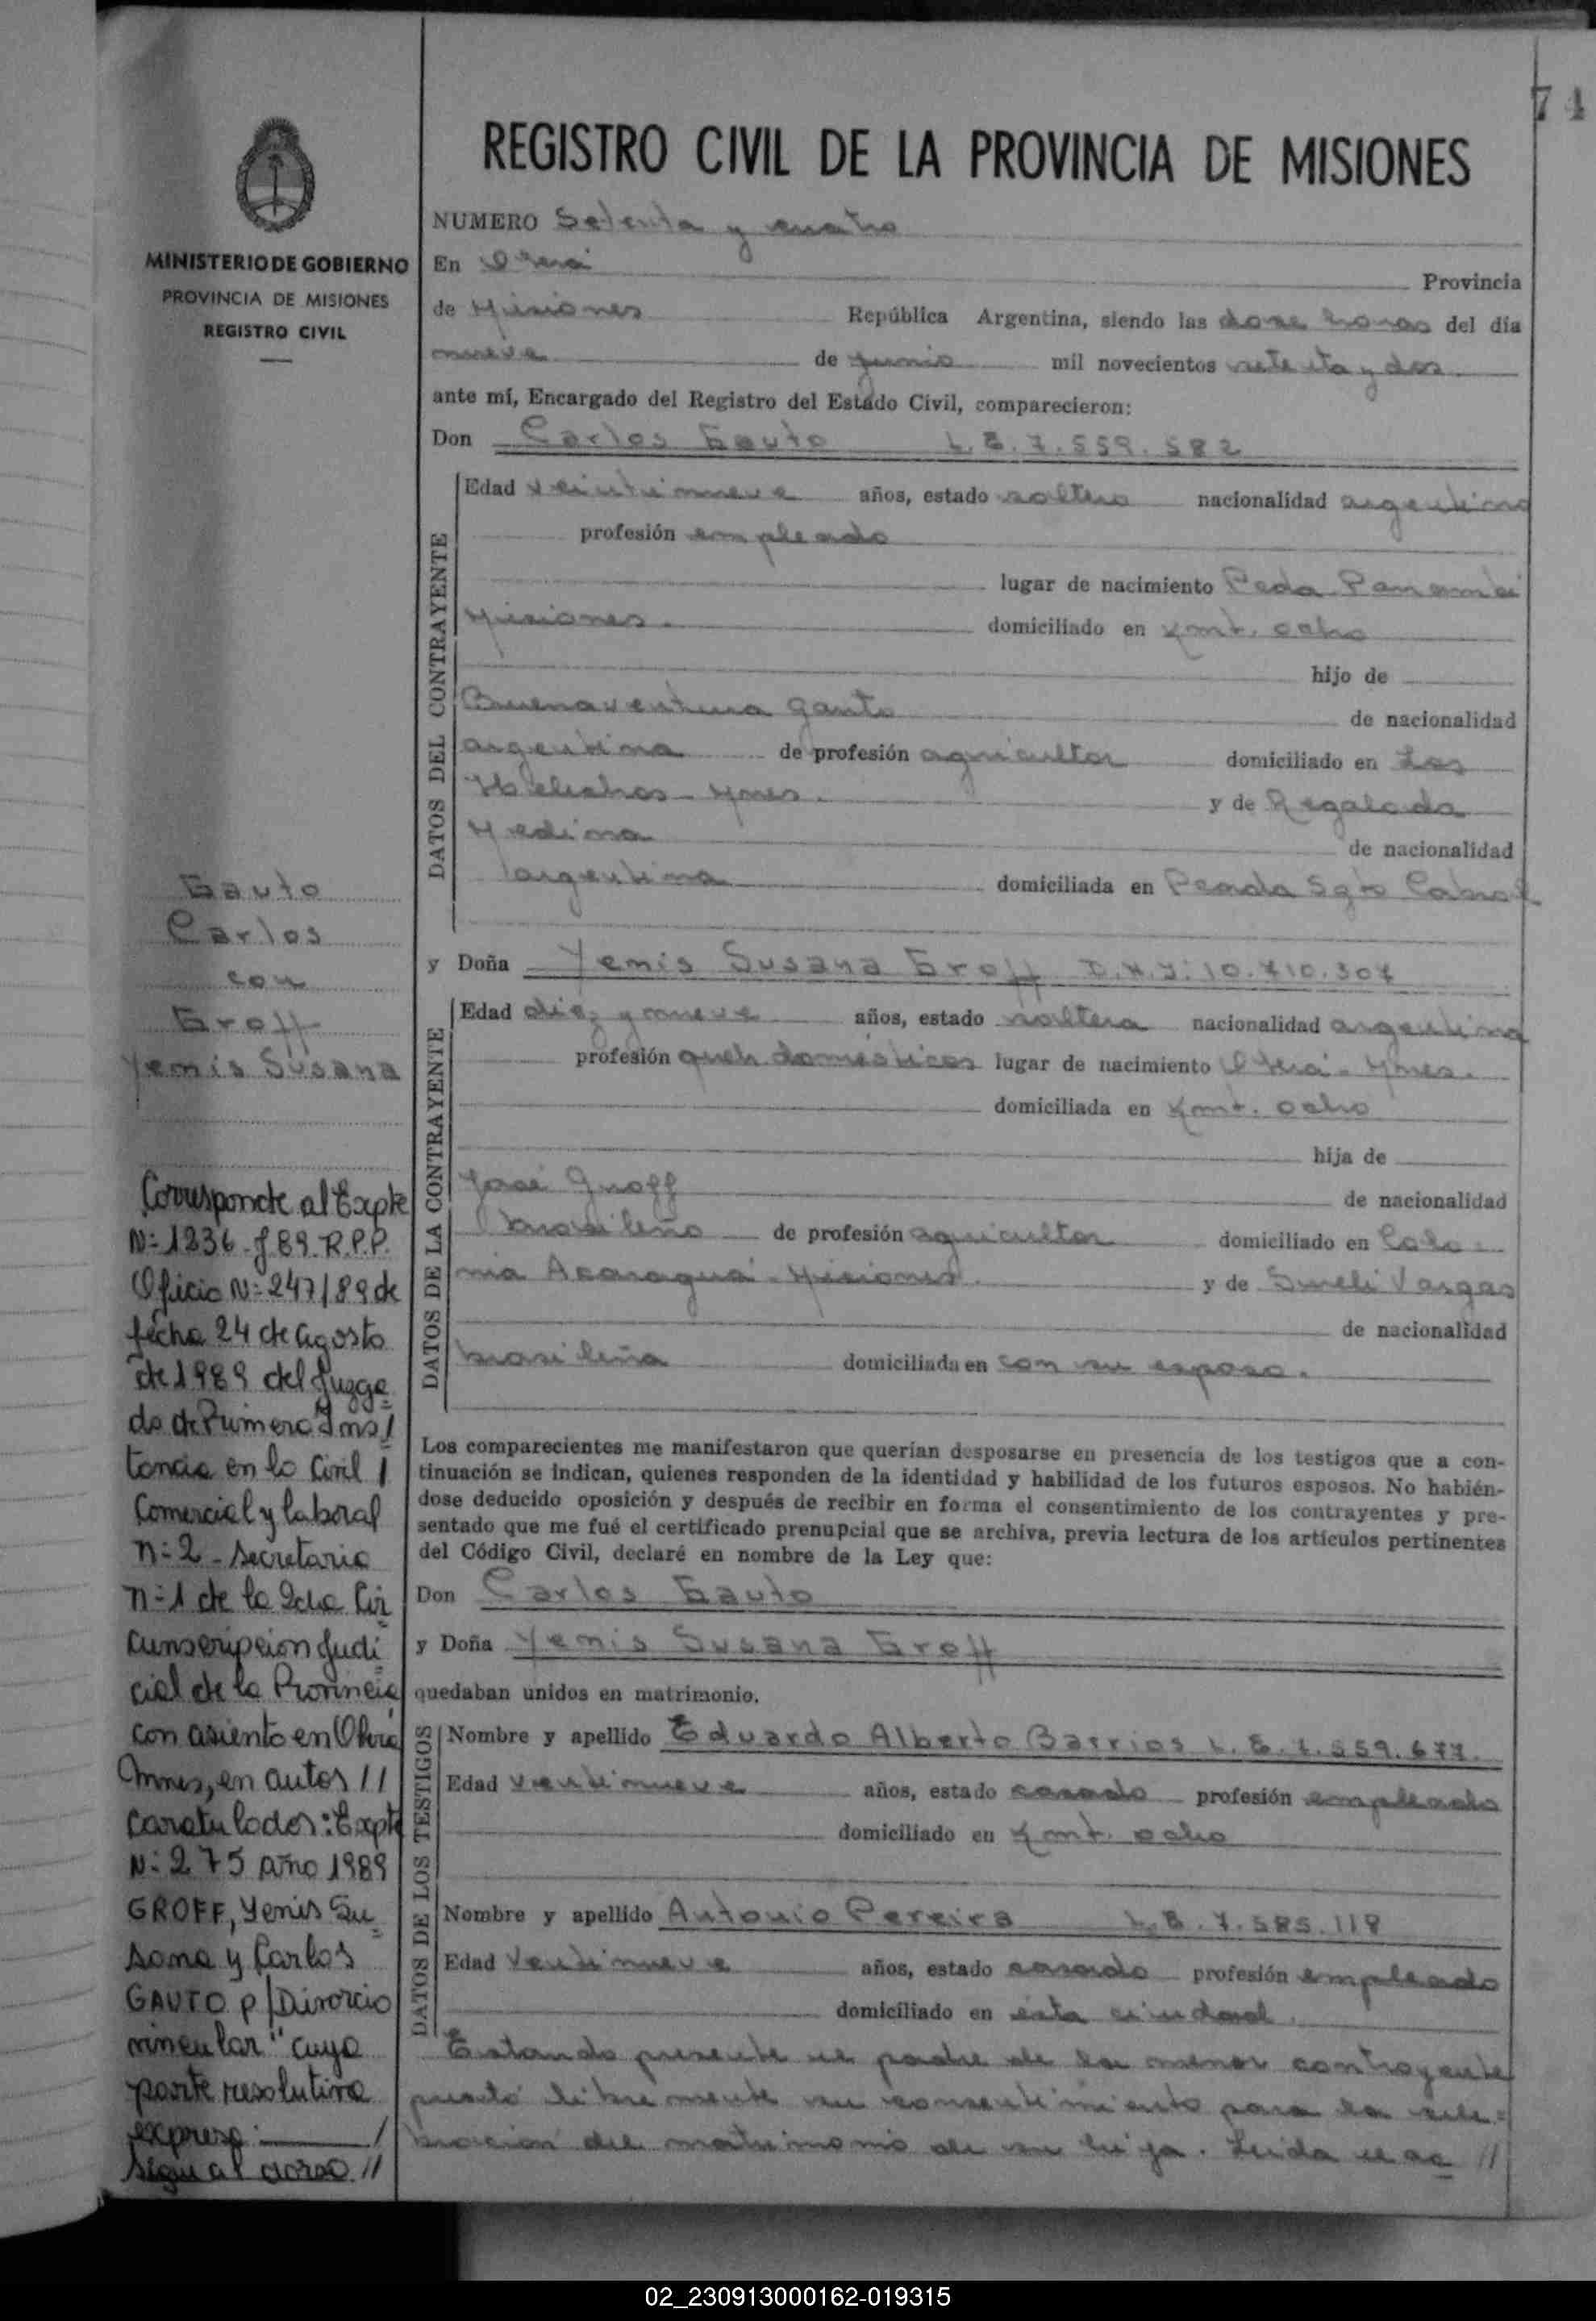 74
REGISTRO CIVIL DE LA PROVINCIA DE MISIONES
MINISTERIO DE GOBIERNO
PROVINCIA DE MISIONES
REGISTRO CIVIL
NUMERO Setenta y cuatro
En Oberá Provincia
de Misiones República Argentina, siendo las doce horas del día
nueve de junio mil novecientos setenta y dos
ante mí, Encargado del Registro del Estado Civil, comparecieron:
Don Carlos Gauto L.E. 7.559.582
DATOS DEL CONTRAYENTE
Edad veintinueve años, estado soltero nacionalidad argentina
profesión empleado
lugar de nacimiento Pcda. Panambí
Misiones. domiciliado en Kmt. ocho
hijo de
Buenaventura Gauto de nacionalidad
argentina de profesión agricultor domiciliado en Los
Helechos - Mnes. y de Regalada
Medina de nacionalidad
argentina domiciliada en Sgto Cabral
y Doña Yenis Susana Groff D.N.I. 10.710.307
DATOS DE LA CONTRAYENTE
Edad diez y nueve años, estado soltera nacionalidad argentina
profesión queh. domésticos lugar de nacimiento Oberá - Mnes.
domiciliada en Kmt. ocho
hija de
José Groff de nacionalidad
brasileño de profesión agricultor domiciliado en Colo-
nia Acaraguá - Misiones. y de Sueli Vargas
de nacionalidad
brasileña domiciliada en con su esposo.
Los comparecientes me manifestaron que querían desposarse en presencia de los testigos que a con-
tinuación se indican, quienes responden de la identidad y habilidad de los futuros esposos. No habién-
dose deducido oposición y después de recibir en forma el consentimiento de los contrayentes y pre-
sentado que me fué el certificado prenupcial que se archiva, previa lectura de los artículos pertinentes
del Código Civil, declaré en nombre de la Ley que:
Don Carlos Gauto
y Doña Yenis Susana Groff
quedaban unidos en matrimonio.
DATOS DE LOS TESTIGOS
Nombre y apellido Eduardo Alberto Barrios L.E. 7.559.677.
Edad veintinueve años, estado casado profesión empleado
domiciliado en Kmt. ocho
Nombre y apellido Antonio Pereira L.E. 7.585.118
Edad Veintinueve años, estado casado profesión empleado
domiciliado en esta ciudad.
Estando presente el padre de la menor contrayente
prestó libremente su consentimiento para la cele=
bración del matrimonio de su hija. Leida el ac //
Gauto
Carlos
con
Groff
Yenis Susana
Corresponde al Expte
Nº 1236-J 89-R.P.P.
Oficio Nº 247/89 de
fecha 24 de agosto
de 1989 del Juzga
do de Primera Ins/
tancia en lo Civil /
Comercial y laboral
nº 2 - Secretaria
nº 1 de la 2da Cir
cunscripcion Judi
cial de la Provincia
con asiento en Oberá
Mnes, en autos //
caratulados: Expte
Nº 275 año 1989
GROFF, Yenis Su
sana y Carlos
GAUTO p/Divorcio
vincular" cuya
parte resolutiva
expresa: /
Sigue al dorso //
02_230913000162-019315